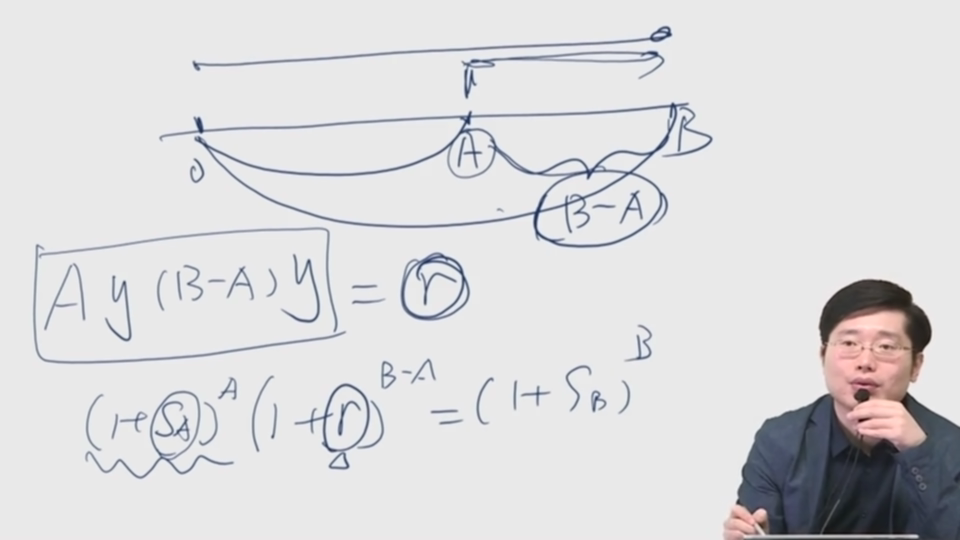 0 A B
B-A
Ay(B-A)y = r
(1+S_A)^A (1+r)^{B-A} = (1+S_B)^B